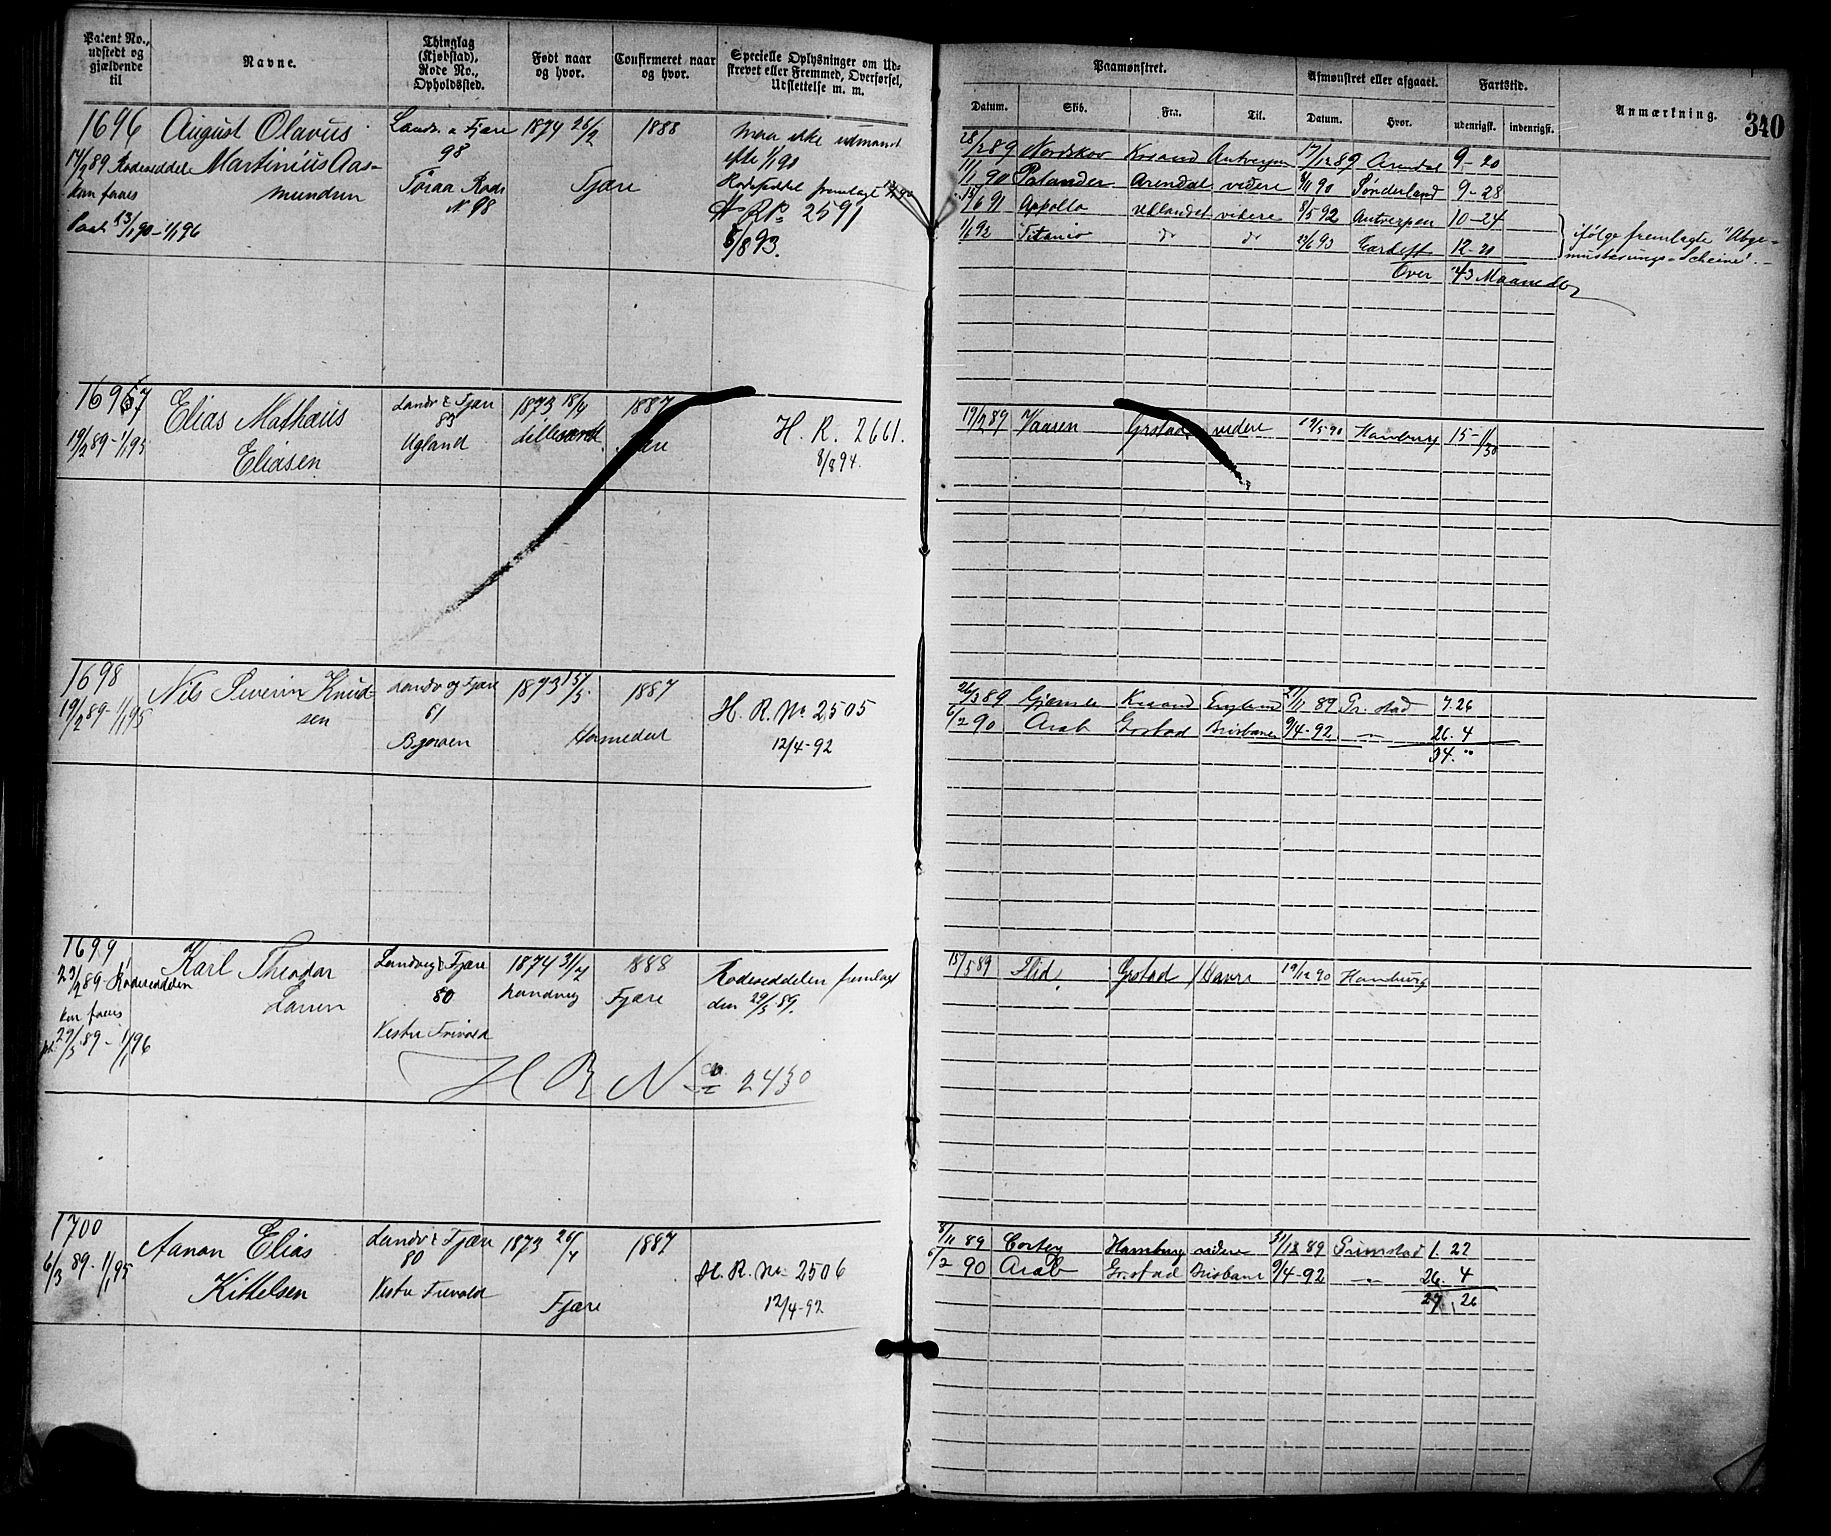 Patent No., udstedt og gjældende til
Navne.
Thinglag (Kjøbstad). Rode No., Opholdssted.
Født naar og hvor.
Confirmeret naar og hvor.
Specielle Oplysninger om Udstrevet eller Fremmed, Overførsel, Udslettelse m. m.
Paamønstret.
Datum.
Skib.
Fra.
Til.
Afmønstret eller afgaaet.
Datum.
Hvor.
Fartstid.
udenrigsk.
indenrigsk.
Anmærkning.
340
1696
14/2 89 Rodeseddel
kan faaes
13/1 90-1/1 96
August Olavus
Martinius Aas-
mundsen
Landv. & Fjære
98
Rode
N. 98
1874 26/2
Fjære
1888
maa ikke udmønst
efte 1/1 90
Rodeseddel fremlagt
H R No 2591
5/8 93.
28/2 89 Nordskov Krsand Antverpen 17/12 89 Arendal 9-20
11/1 90 Palander Arendal videre 8/11 90 Sønderland 9-28
15/6 91 Appollo Udlandet videre 8/5 92 Antverpen 10-24
1/6 92 Titania do do 21/6 93 Cardiff 12-20
Over 43 Maaneder
ifølge fremlagte "Abge-
musterungs-Scheine".-
1697
19/2 89-1/1 95
Elias Mathæus
Eliasen
Landv & Fjære
83
Ugland
1873 18/4
Lillesand
1887
Fjære
H. R. 2661.
8/8 94.
19/2 89 Vaaren Grstad videre 19/5 90 Hamburg 15-1/30
1698
19/2 89-1/1 95
Nils Severin Knud-
sen
Landv og Fjære
61
1873 15/5
1887
Homedal
H. R. No 2505
12/4-92
26/3 89 Krsand England 21/11 89 Gr. stad 7.26
6/2 90 Arab Grstad Brisbane 9/4-92 -"- 26. 4
34. "
1699
23/2 89-Rodeseddelen
kan faaes
29/5 89-1/1 96
Karl Theodor
Larsen
Landvig & Fjære
80
Vestre Trivold
1874 31/7
Landvig
1888
Fjære
Rodeseddelen fremlagt
den 29/5 89.
H R No 2430
15/5 89 Flid. Grstad Havre 19/12 90 Hamburg
1700
6/3 89-1/1 95
Aanon Elias
Kittelsen
Landv & Fjære
80
Vestre Trevold
1873 26/7
Fjære
1887
H. R. No 2506
12/4-92
8/11 89 Hamburg videre 31/12 89 Grimstad 1. 22
6/2 90 Arab Grstad Brisbane 9/4-92 -"- 26. 4
27, 26